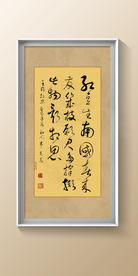 红豆生南國春来
发几枝愿君多采撷
此物最相思